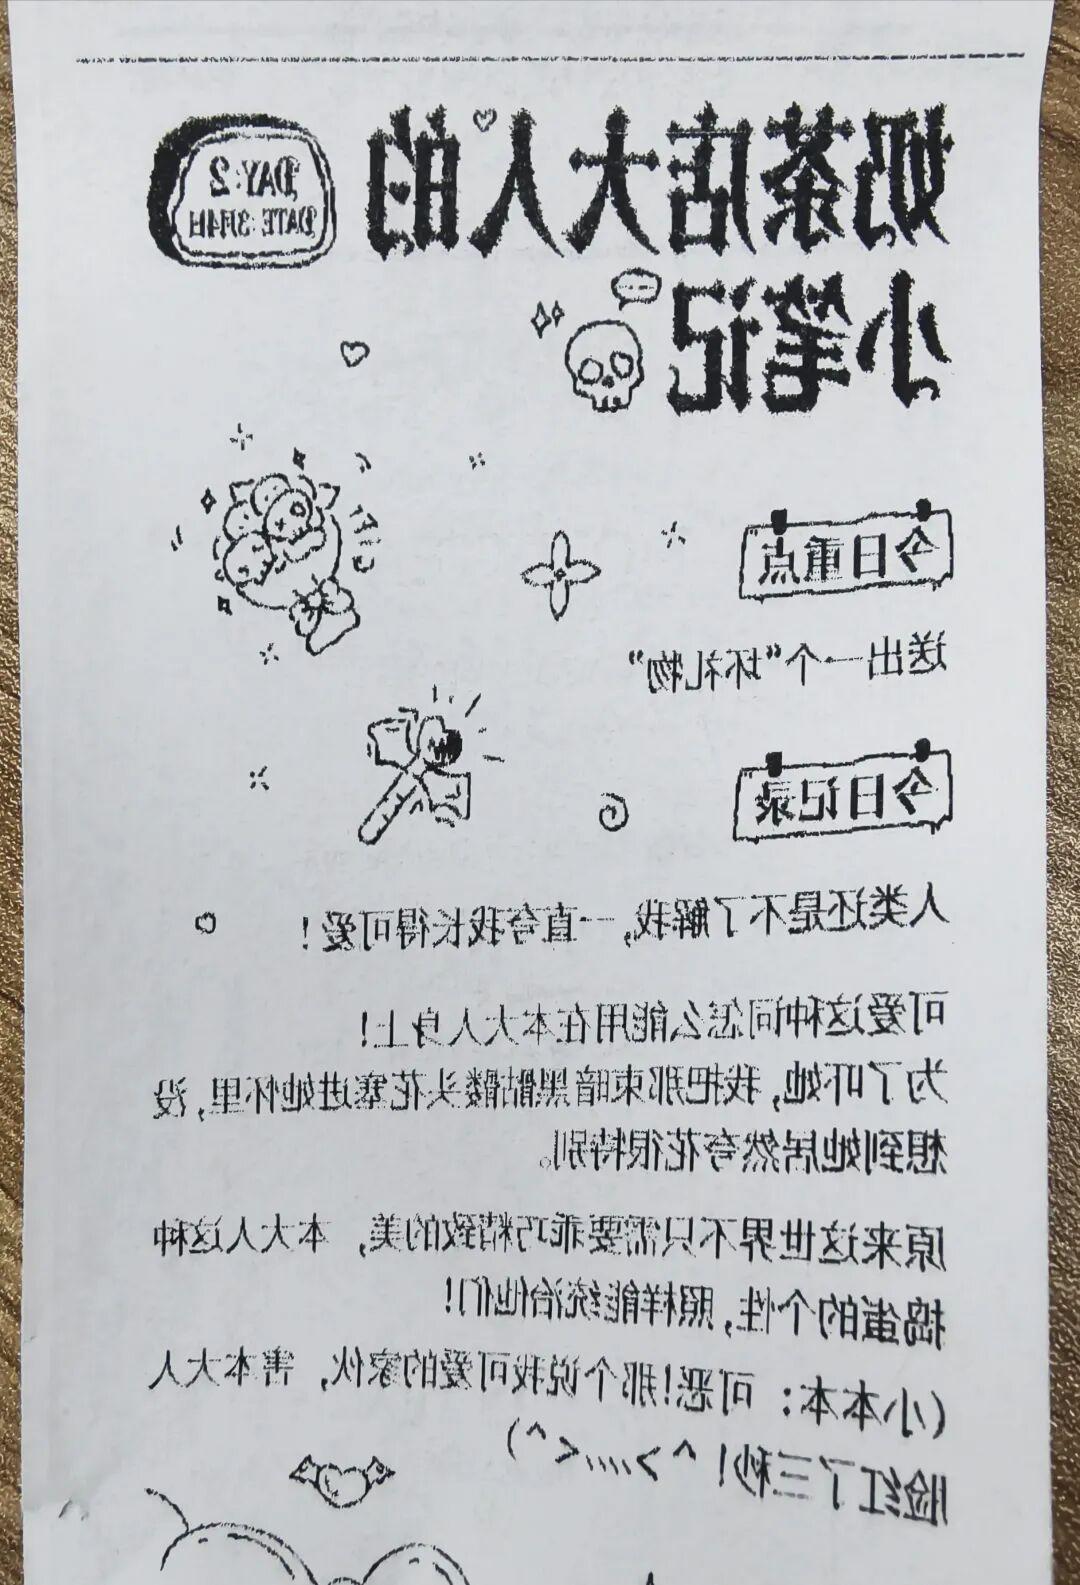 奶茶店大人的
小笔记
DAY:2
DATE:3月4日
今日重点
送出一个“坏礼物”
今日记录
人类还是不了解我，一直夸我长得可爱！
可爱这种词怎么能用在本大人身上！
为了吓她，我把那束暗黑骷髅头花塞进她怀里，没
想到她居然夸花很特别。
原来这世界不只需要乖巧精致的美，本大人这种
捣蛋的个性，照样能统治他们！
（小本本：可恶！那个说我可爱的家伙，害本大人
脸红了三秒！^>,,,,<^）